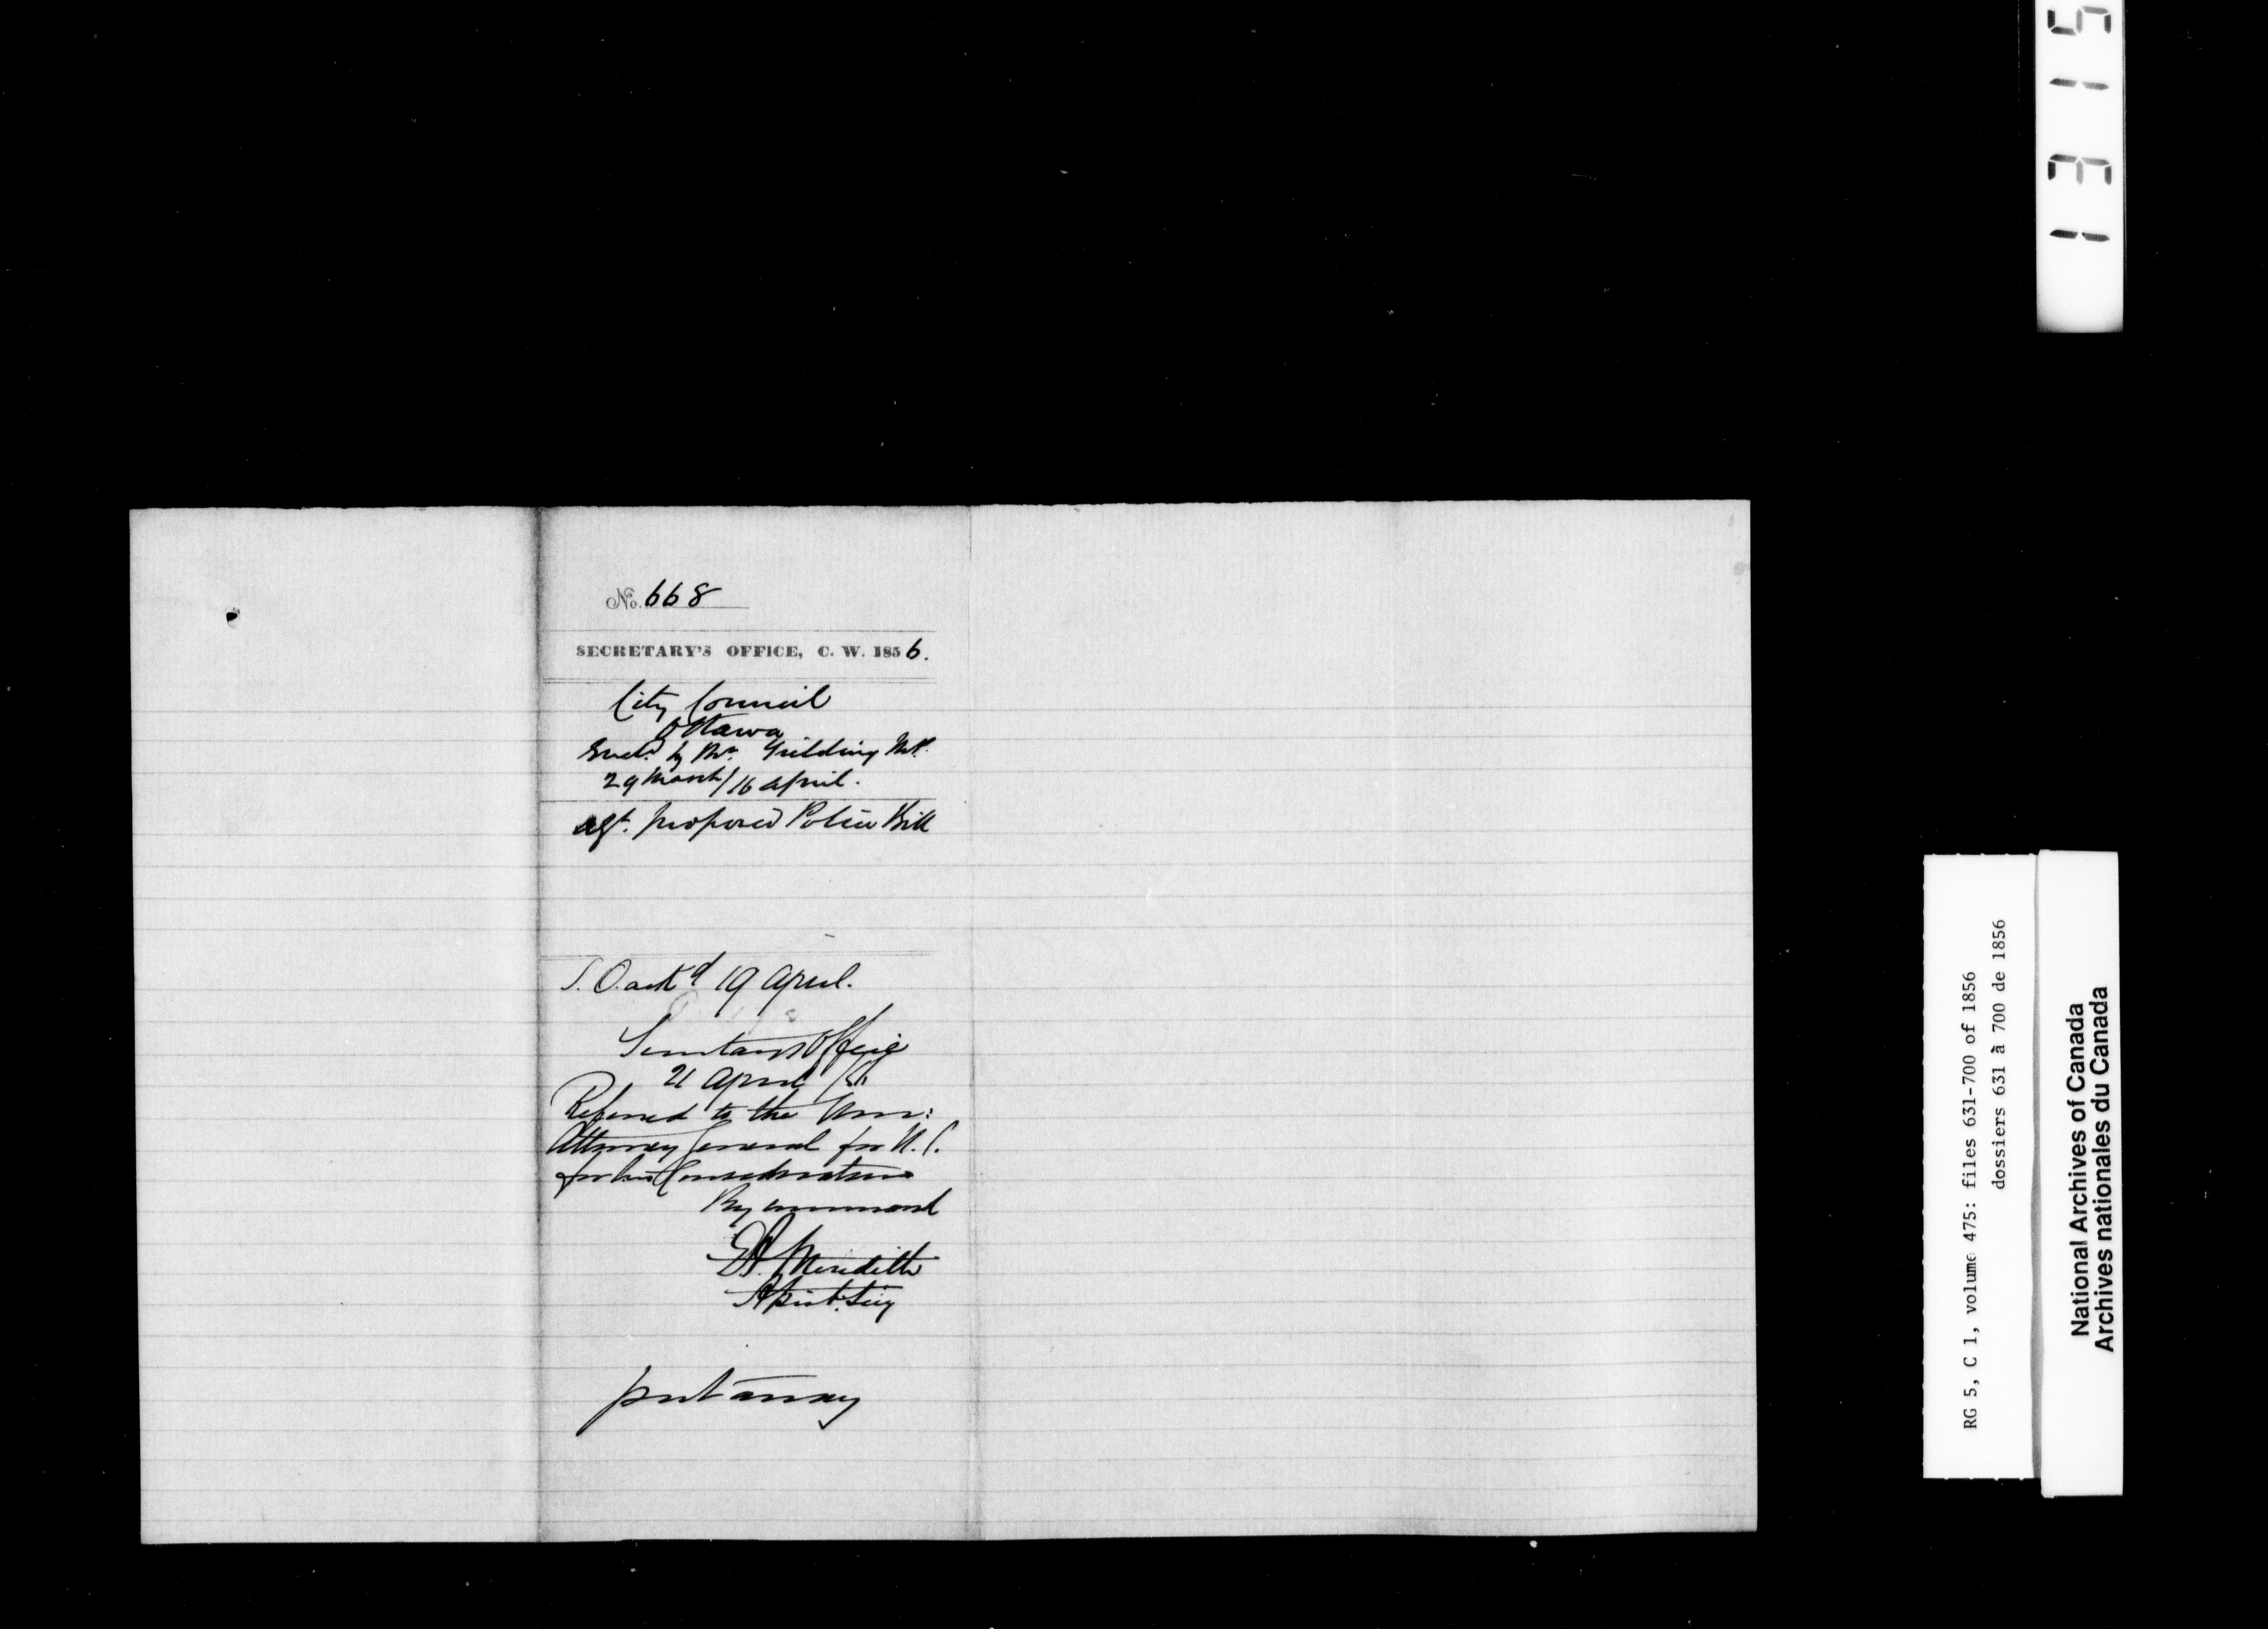 No. 668
SECRETARY'S OFFICE, C. W. 1856.
City Council
Ottawa
by Mr.
29 March / 16 April.
agt. proposed Police Bill
ackd 19 April.
Secretary's Office
21 April / 56
Referred to the Hon:
Attorney General for U. C.
for his Consideration
By command
E A. Meredith
Asst. Secy
put away
1315
RG 5, C 1, volume 475: files 631-700 of 1856
dossiers 631 à 700 de 1856
National Archives of Canada
Archives nationales du Canada